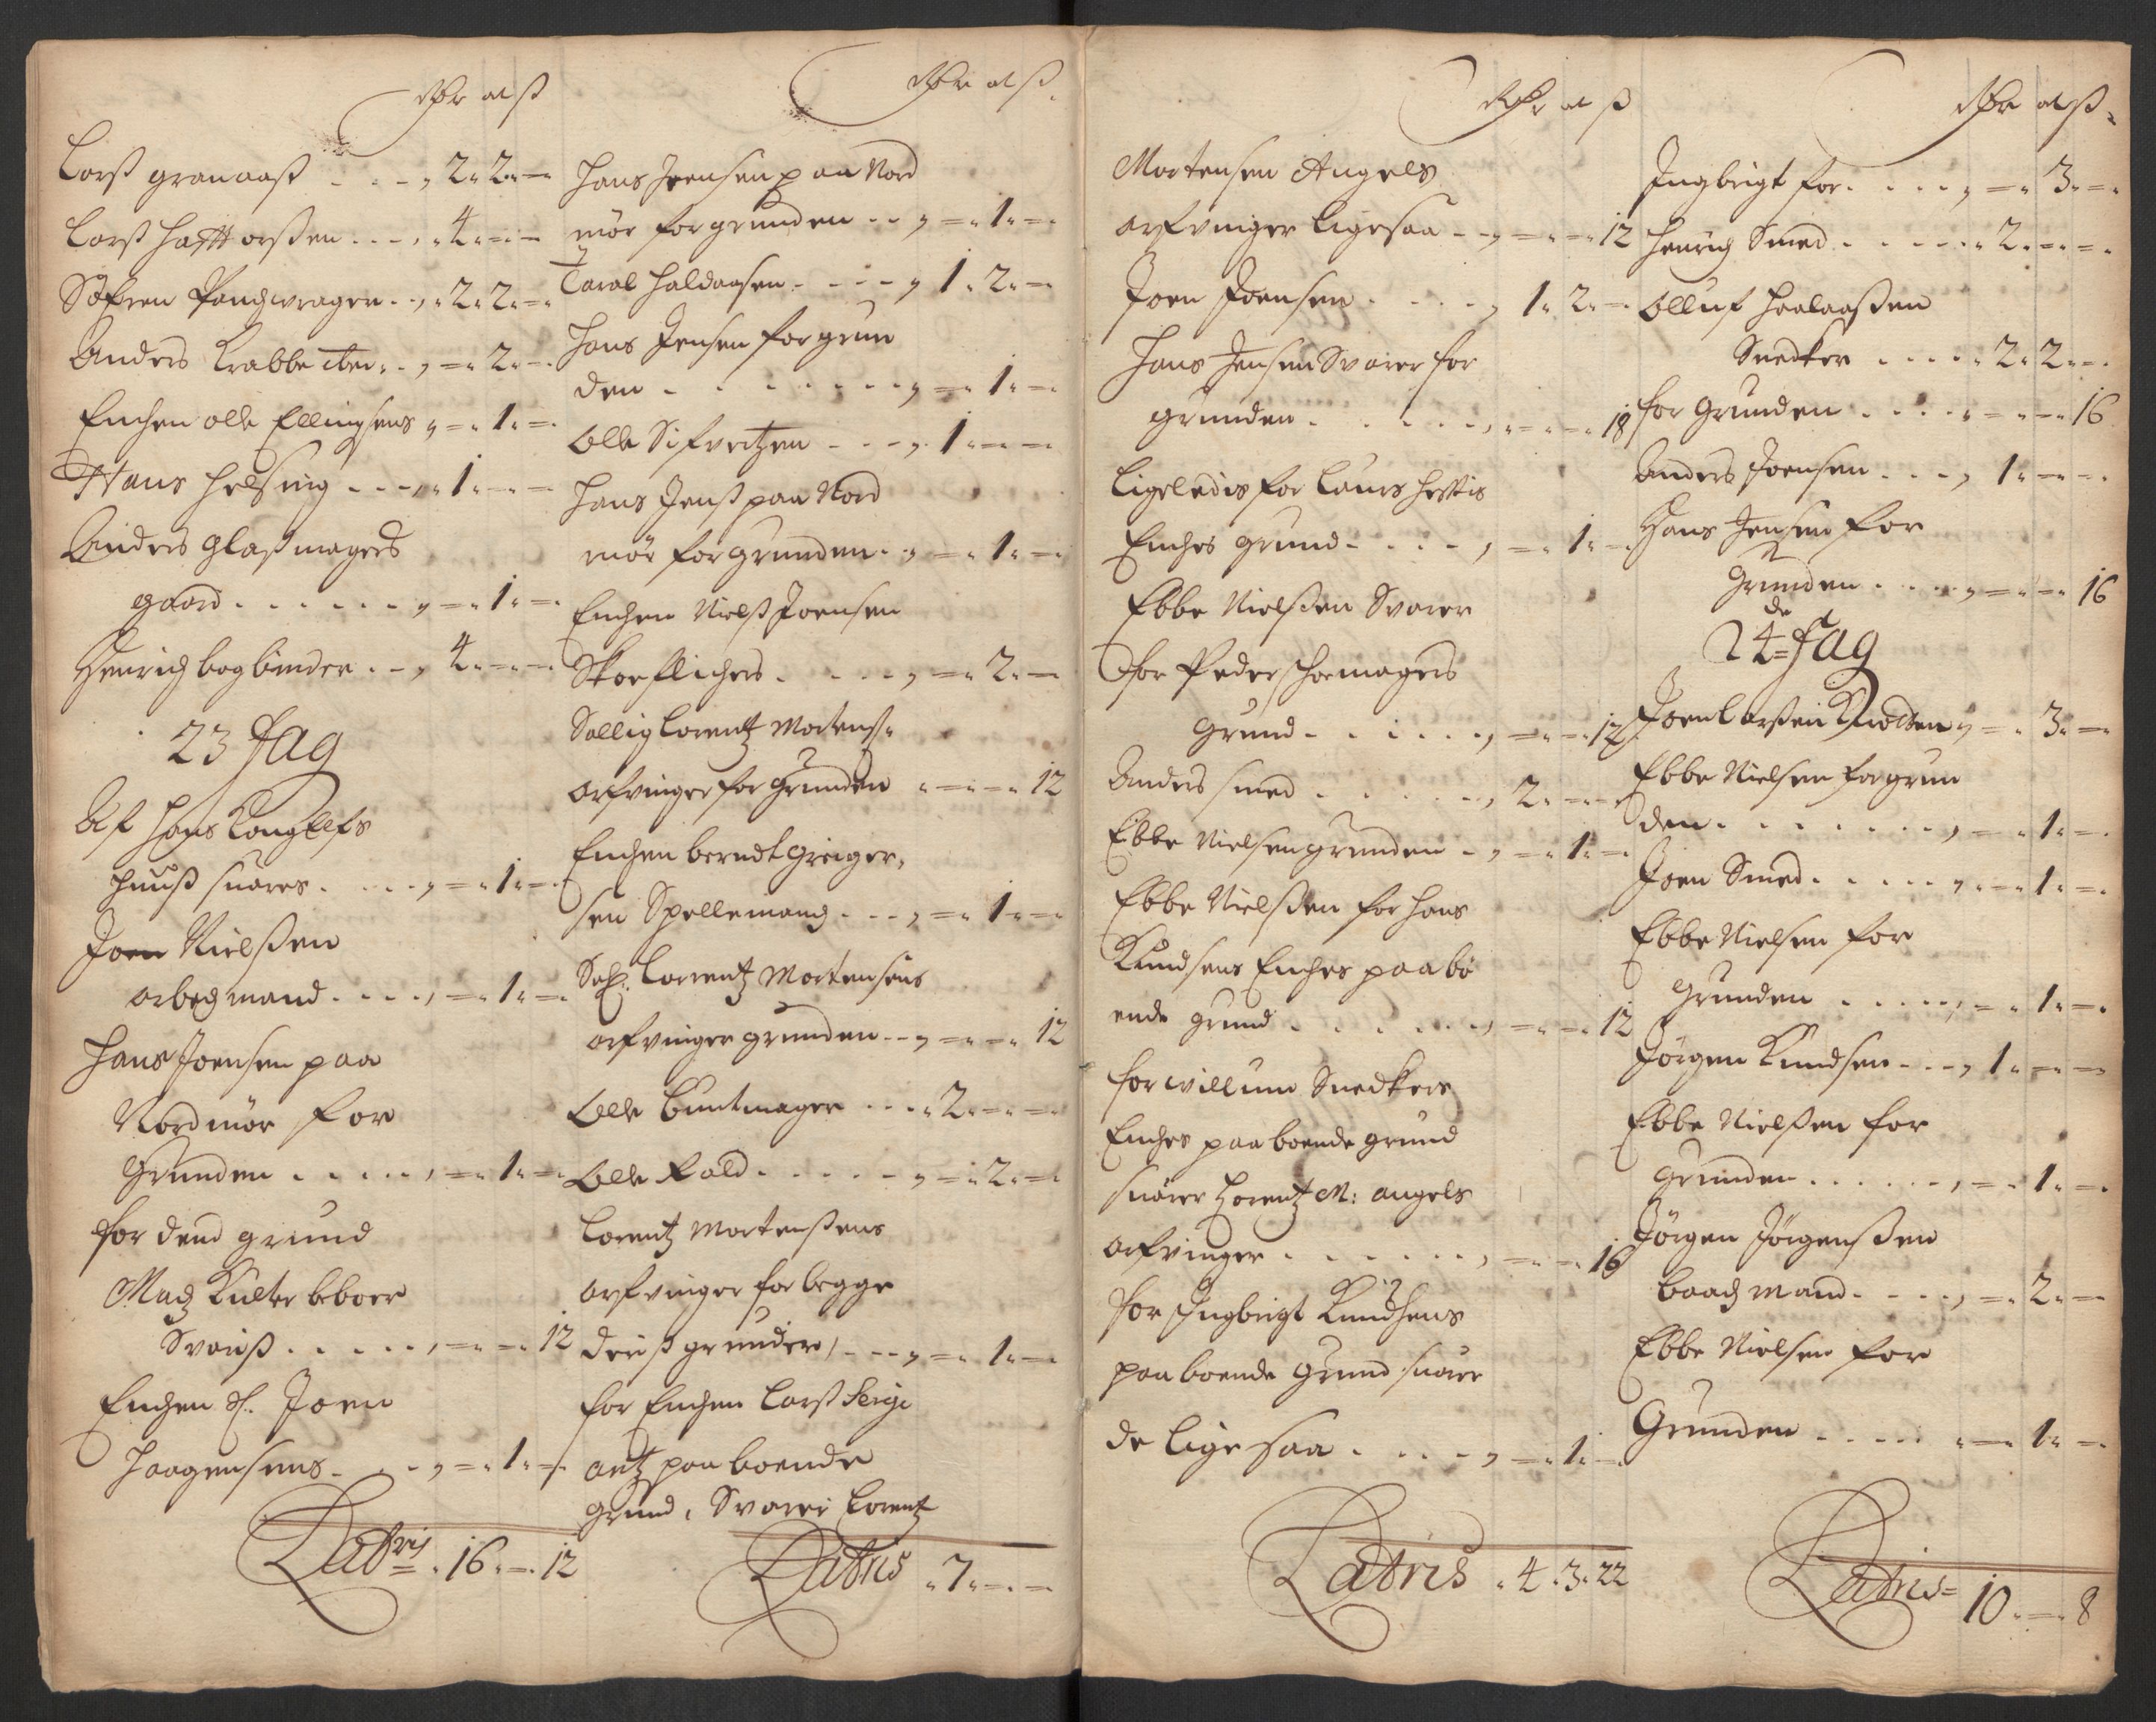 Rdr ort ß
Larß granaaß - - - , 2 " 2 " =
Larß hattorßen - - - , " 4 " = " =
Søfren Pandvrager - - , " 2 " 2 " =
Anders Krabbe - , = " 2 " =
Enchen olle Ellingsens " = " 1 " =
Hans helsing - - - , " 1 " = " =
Anders glaßmagers
gaard - - - - - - , = " 1 " =
Henrich bogbinder - - , 4 " = " =
23 fag
Af hans Langlefs
huuß suares - - - - , = " 1 " =
Joen Nielßen
arbeg mand - - - - , = " 1 " =
hans Joensen paa
Nordmør for
Grunden - - - - - , = " 1 " =
for dend grund
Madz Kulter beboer
Svaris - - - - - , = " = " 12
Enchen Joen
haagensens - - - - , = " 1 " =
Latris " 16 " = " 12
Rdr ort ß
hans Joensen paa Nord
mør for grunden - - , = " 1 " =
Taral haldaasen - - - - , 1 " 2 " =
hans Jensen for grun
den - - - - - - - , = " 1 " =
olle Sifvertzen - - - , 1 " = " =
hans Jenß paa Nord
mør for grunden - , = " 1 " =
Enchen Nielß Joensen
Skoeflichers - - - - , = " 2 " =
Sallig Lorentz Mortens
arfvinger for Grunden " = " = " 12
Enchen berndt greiger,
sen Spellemand - - - , = " 1 " =
Sal: Lorentz Mortensens
arfvinger grunden - - , = " = " 12
olle buntmager - - - " 2 " = " =
olle Fald - - - - - , = " 2 " =
Lorentz Mortenßens
arfvinger for begge
deriß grunder - - - , = " 1 " =
for Enchen Larß
antz paa boende
grund, Svarer Lorentz
Latris " 7 " = " =
Rdr ort ß
Mortensen Angels
arfvinger ligesaa - - , = " = " 12
Joen Joensen - - - - , 1 " 2 " =
hans Jensen Svarer for
grunden - - - - - , " = " = 18
ligeledis for Laurs
Enches grund - - - - , = " 1 " =
Ebbe Nielßen Svarer
for Peder schomagers
Grund - - - - - , = " = " 12
Anders smed - - - - - , 2 " = " =
Ebbe Nielsen grunden - , = " 1 " =
Ebbe Nielßen for hans
Knudsens Enches paa bo
ende grund - - - - - , = " = " 12
for willum Snedkers
Enches paa boende grund
suarer Lorentz M: angels
arfvinger - - - - - - , = " = " 16
for Ingbrigt Knudsens
paa boende Grund suarer
de lige saa - - - - , = " 1 " =
Latris " 4 " 3 " 22
Rdr ort ß
Ingbrigt for - - - - - , = " 3 " =
henrich Smed - - - - - " 2 " = " =
olluf haalaaßen
Snedker - - - - " 2 " 2 " =
for Grunden - - - - " = " = " 16
Anders Joensen - - - , 1 " = " =
Hans Jensen for
Grunden - - - - , = " = " 16
24de fag
Joen Larßen Knotten , = " 3 " =
Ebbe Nielsen for grun
den - - - - - - - - , = " 1 " =
Joen Smed - - - - - , = " 1 " =
Ebbe Nielsen for
grunden - - - - - , = " 1 " =
Jørgen Knudsen - - - , 1 " = " =
Ebbe Nielßen for
grunden - - - - - - , = " 1 " =
Jørgen Jørgenßen
baadz mand - - - - , = " 2 " =
Ebbe Nielsen for
Grunden - - - - " = " 1 " =
Latris = 10 " = " 8